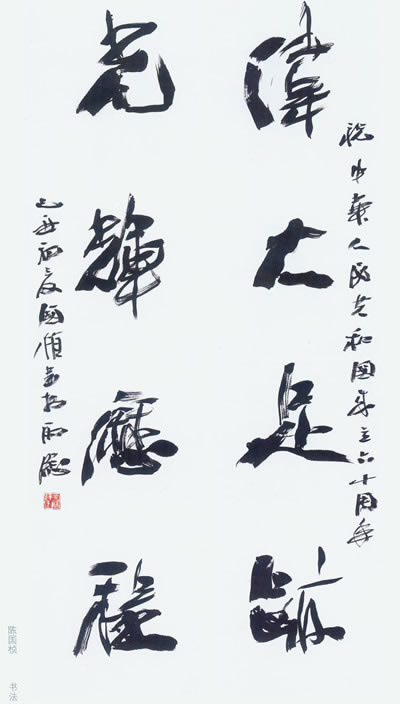 祝中華人民共和國成立六十周年
偉大足跡
光輝歷程
己丑初夏國
陈国桢 书法